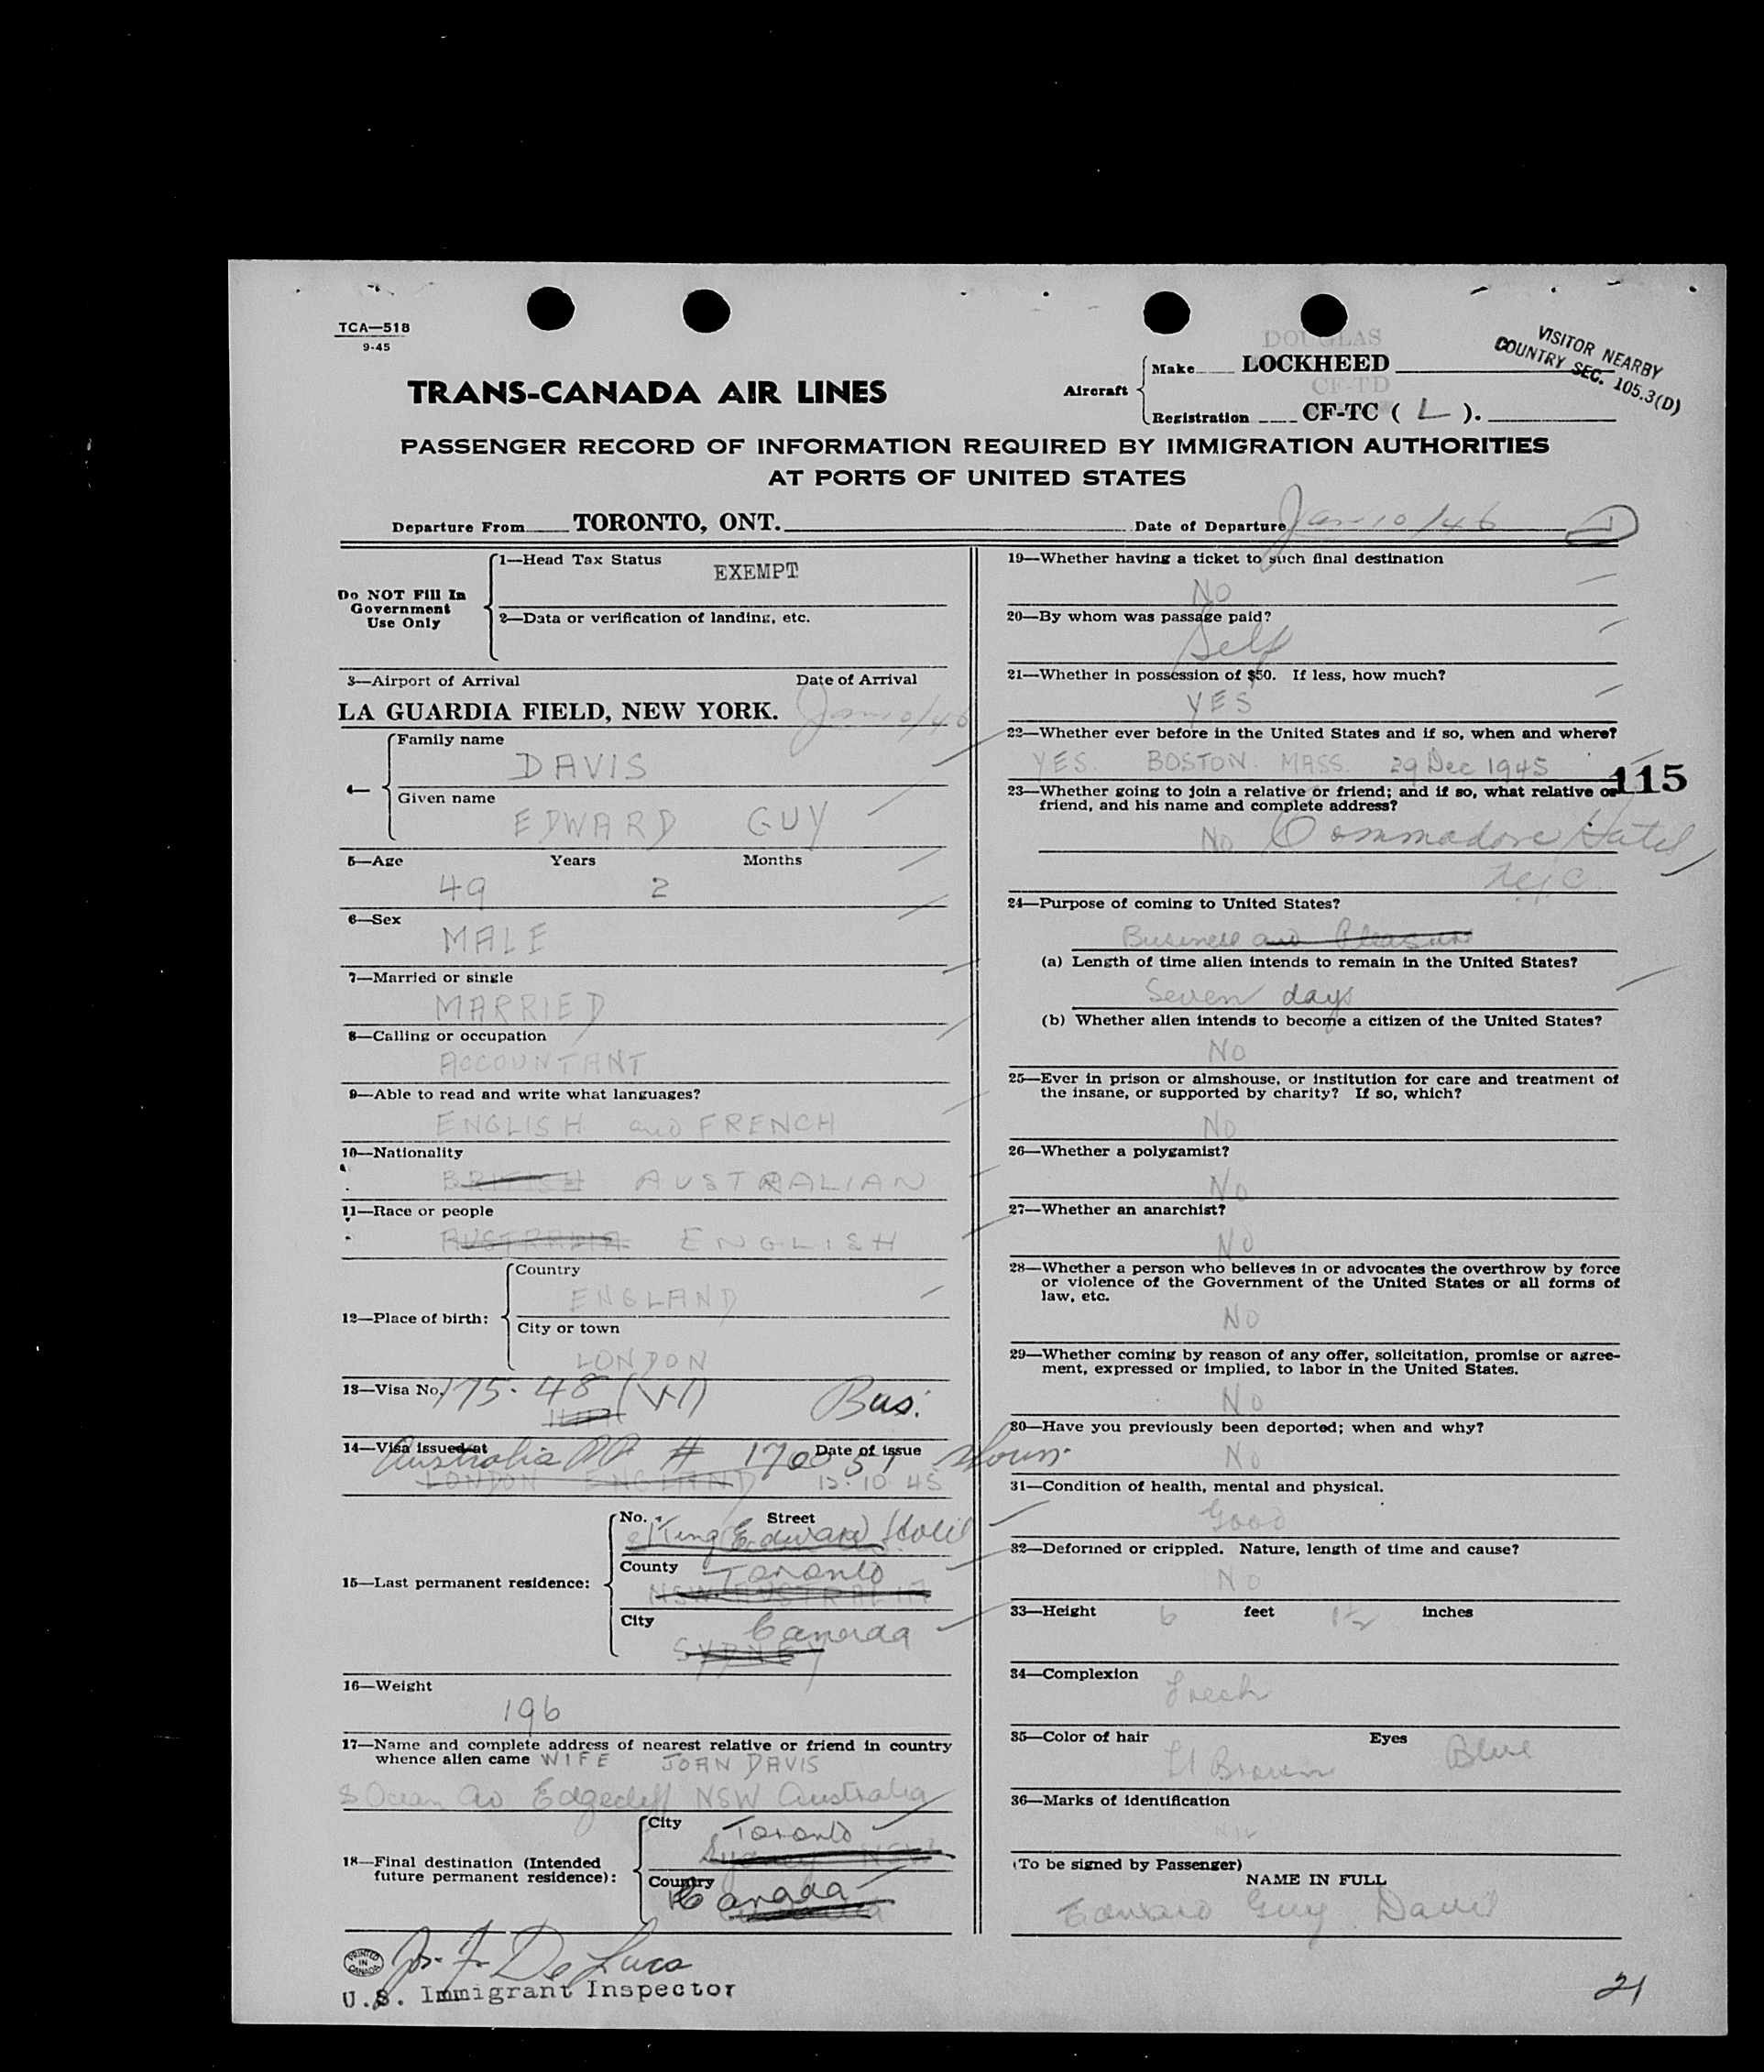 TCA—518
9-45
DOUGLAS
Make LOCKHEED
VISITOR NEARBY
COUNTRY SEC. 105.3(D)
TRANS-CANADA AIR LINES
Aircraft
CF-TD
Registration CF-TC ( L ).
PASSENGER RECORD OF INFORMATION REQUIRED BY IMMIGRATION AUTHORITIES
AT PORTS OF UNITED STATES
Departure From TORONTO, ONT. Date of Departure Jan 10/46
Do NOT Fill In
Government
Use Only
1—Head Tax Status
EXEMPT
2—Data or verification of landing, etc.
3—Airport of Arrival Date of Arrival
LA GUARDIA FIELD, NEW YORK. Jan 10/46
4—
Family name
DAVIS
Given name
EDWARD GUY
5—Age Years Months
49 2
6—Sex
MALE
7—Married or single
MARRIED
8—Calling or occupation
ACCOUNTANT
9—Able to read and write what languages?
ENGLISH and FRENCH
10—Nationality
BRITISH AUSTRALIAN
11—Race or people
AUSTRALIA ENGLISH
12—Place of birth:
Country
ENGLAND
City or town
LONDON
13—Visa No. 175-48 (VI) Bus.
14—Visa issued at Date of issue
Australia PP # 170051 shown
LONDON ENGLAND 12.10.45
15—Last permanent residence:
No. Street
King Edward Hotel
County Toronto
NSW AUSTRALIA
City Canada
SYDNEY
16—Weight
196
17—Name and complete address of nearest relative or friend in country
whence alien came WIFE JOAN DAVIS
8 Ocean Av Edgecliff NSW Australia
18—Final destination (Intended
future permanent residence):
City Toronto
Sydney NSW
Country
Canada
Australia
PRINTED IN CANADA
Jos. F. De Luca
U.S. Immigrant Inspector
19—Whether having a ticket to such final destination
No
20—By whom was passage paid?
Self
21—Whether in possession of $50. If less, how much?
YES
22—Whether ever before in the United States and if so, when and where?
YES. BOSTON. MASS. 29 Dec 1945
115
23—Whether going to join a relative or friend; and if so, what relative or
friend, and his name and complete address?
No Commodore Hotel
NYC
24—Purpose of coming to United States?
Business and Pleasure
(a) Length of time alien intends to remain in the United States?
Seven days
(b) Whether alien intends to become a citizen of the United States?
No
25—Ever in prison or almshouse, or institution for care and treatment of
the insane, or supported by charity? If so, which?
No
26—Whether a polygamist?
No
27—Whether an anarchist?
No
28—Whether a person who believes in or advocates the overthrow by force
or violence of the Government of the United States or all forms of
law, etc.
No
29—Whether coming by reason of any offer, solicitation, promise or agree-
ment, expressed or implied, to labor in the United States.
No
30—Have you previously been deported; when and why?
No
31—Condition of health, mental and physical.
Good
32—Deformed or crippled. Nature, length of time and cause?
No
33—Height 6 feet 1½ inches
34—Complexion
Fresh
35—Color of hair Eyes
Lt Brown Blue
36—Marks of identification
NIL
(To be signed by Passenger)
NAME IN FULL
Edward Guy Davis
21